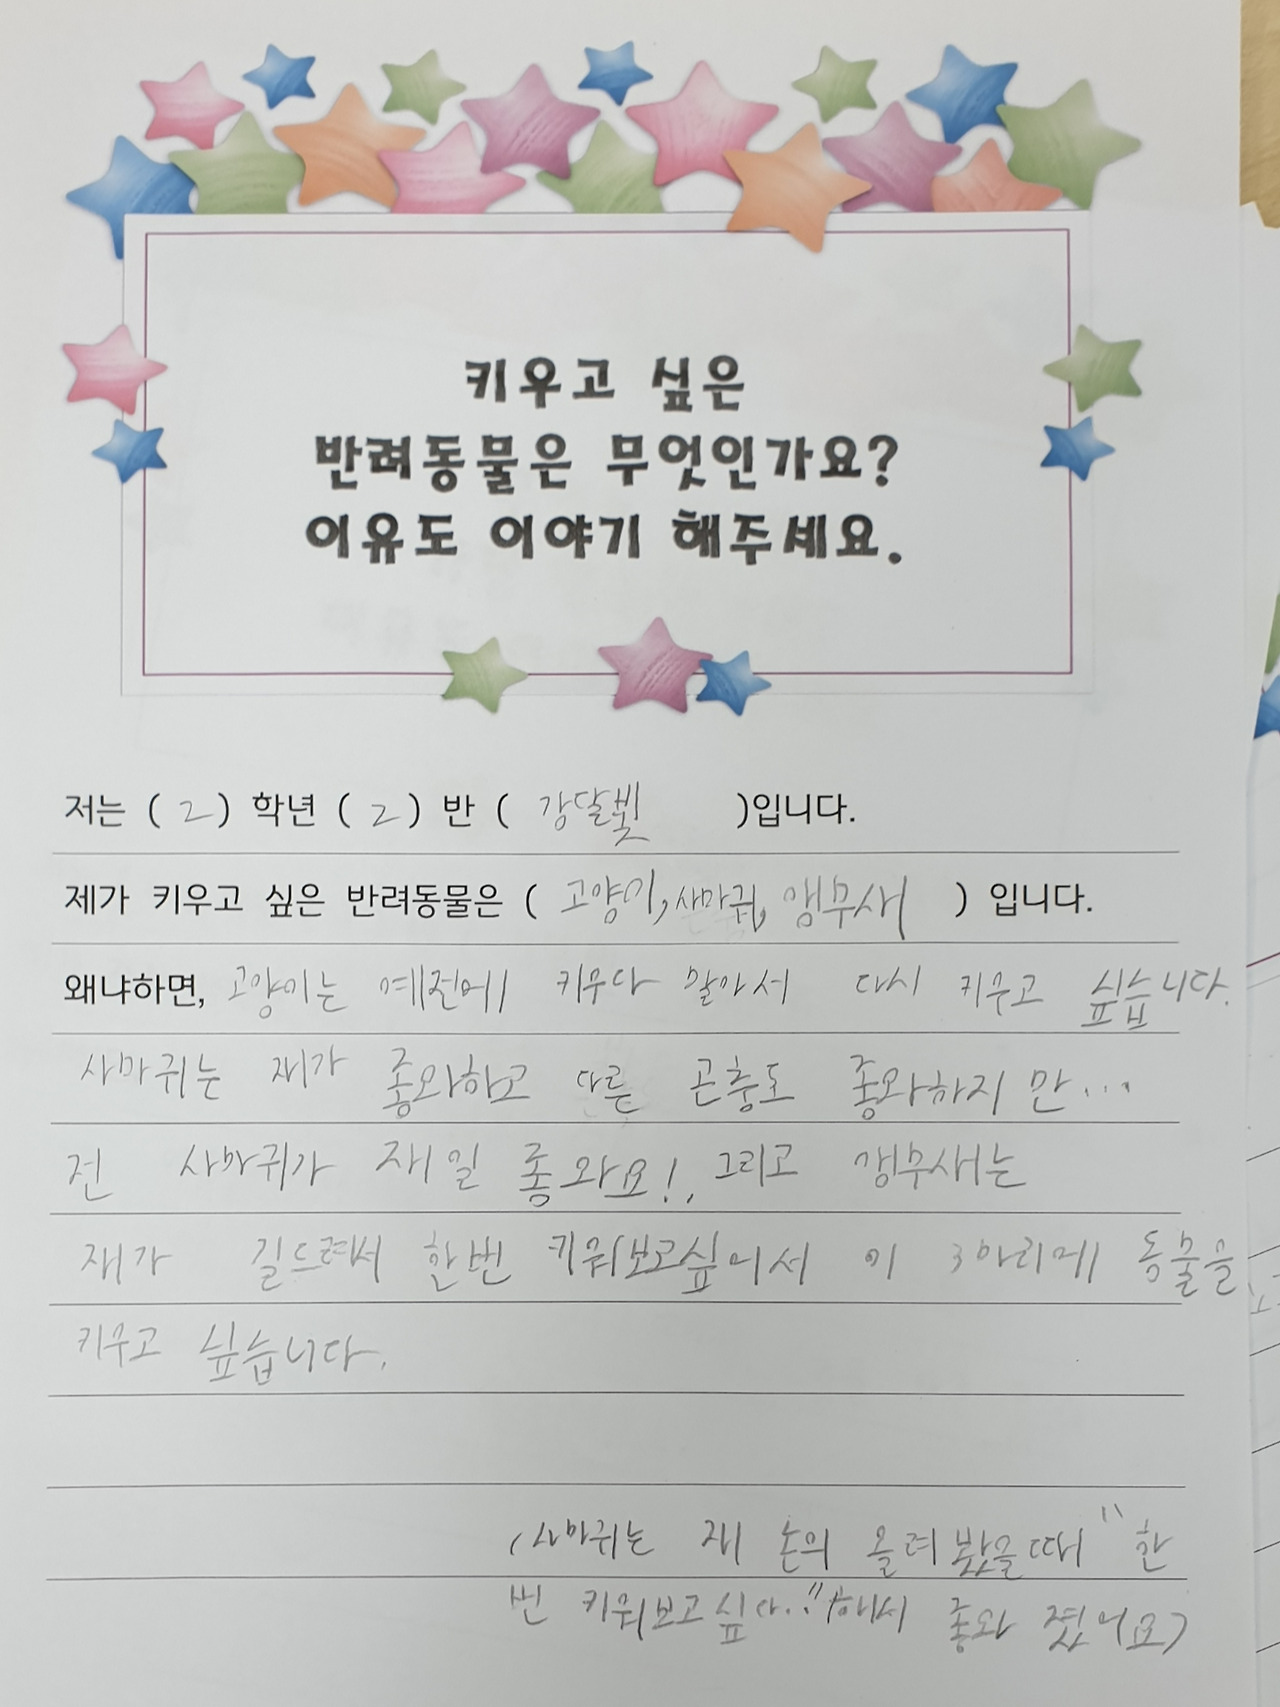 키우고 싶은
반려동물은 무엇인가요?
이유도 이야기 해주세요.
저는 ( 2 ) 학년 ( 2 ) 반 ( 강달빛 )입니다.
제가 키우고 싶은 반려동물은 ( 고양이, 사마귀, 앵무새 ) 입니다.
왜냐하면, 고양이는 예전에 키우다 말아서 다시 키우고 싶습니다.
사마귀는 재가 좋와하고 다른 곤충도 좋와하지만...
전 사마귀가 재일 좋와요!, 그리고 앵무새는
재가 길드려서 한번 키워보고싶어서 이 3마리에 동물을
키우고 싶습니다.
(사마귀는 재 손의 올려봤을때 "한
번 키워보고싶다.."해서 좋와졌어요)